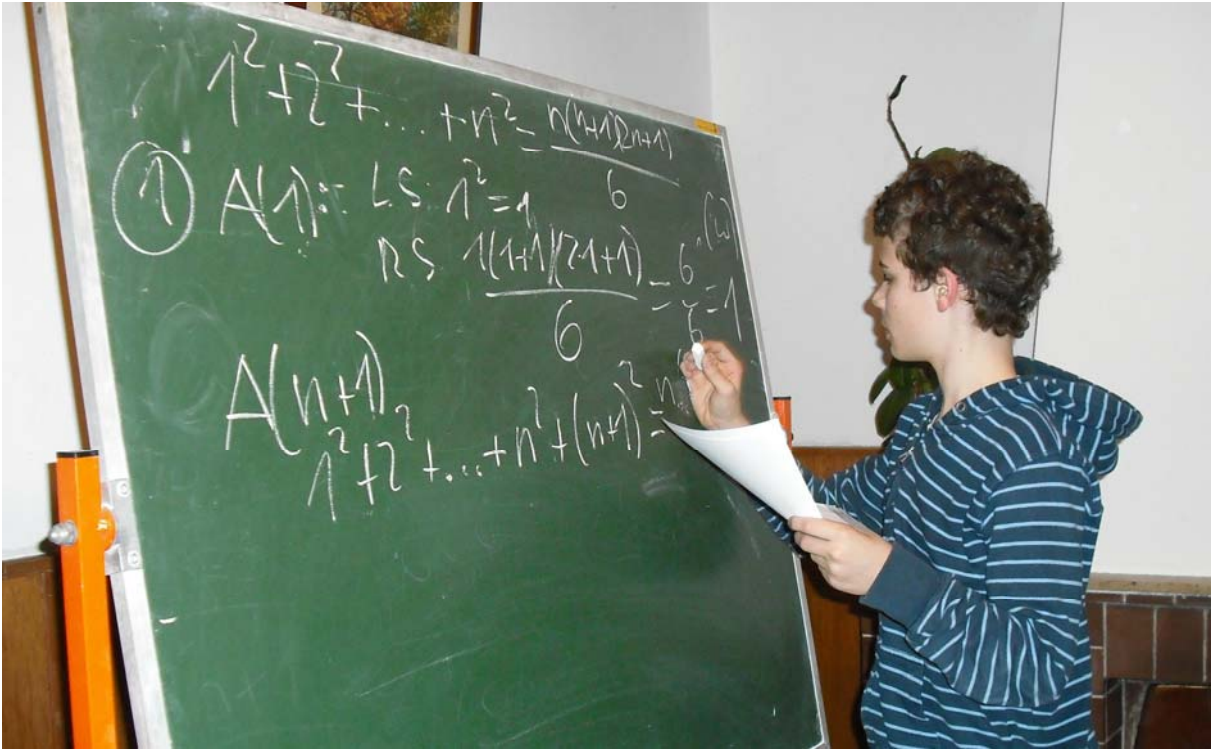 1²+2²+...+n² = n(n+1)(2n+1)/6
① A(1): LS: 1²=1
RS 1(1+1)(2·1+1)/6 = 6/6 = 1
A(n+1)
1²+2²+...+n²+(n+1)² = n